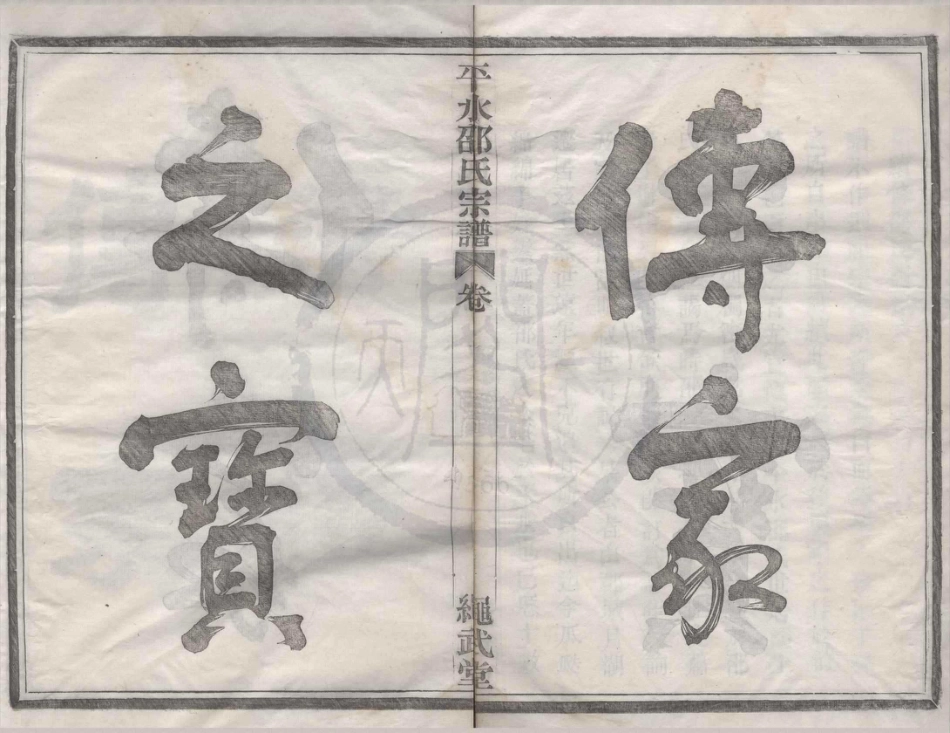 傳家
平水邵氏宗譜 卷
繩武堂
之寶